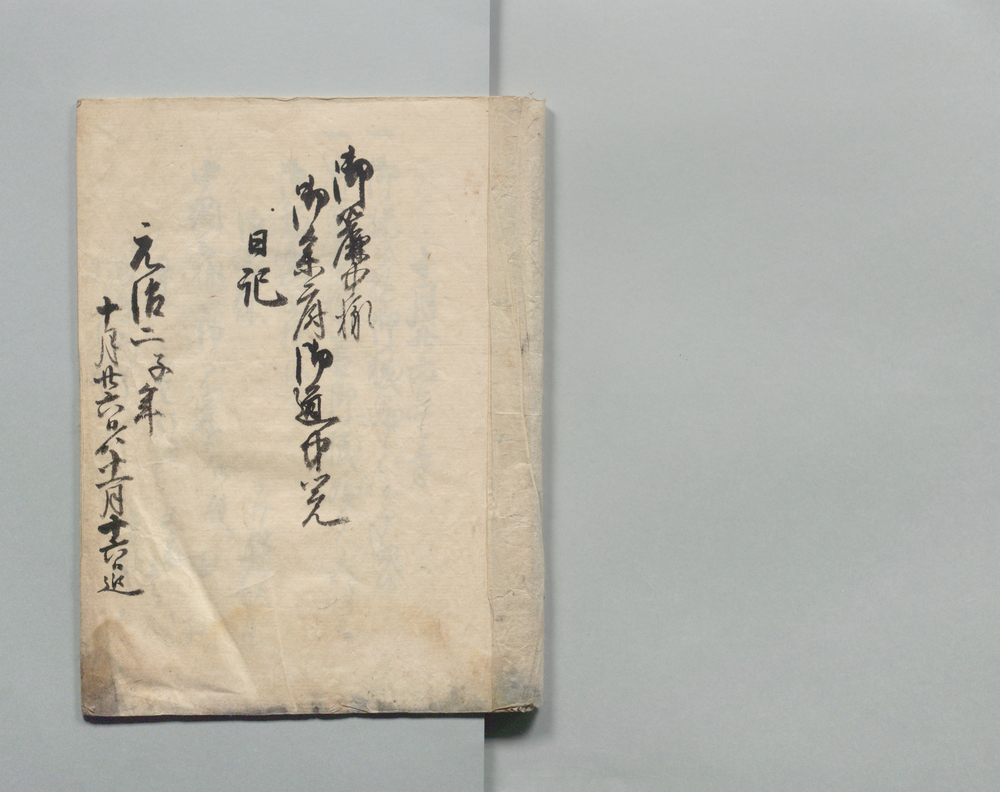 御簾中様
御参府御道中覚
日記
元治二子年
十月廿六日ゟ十一月十六日迄